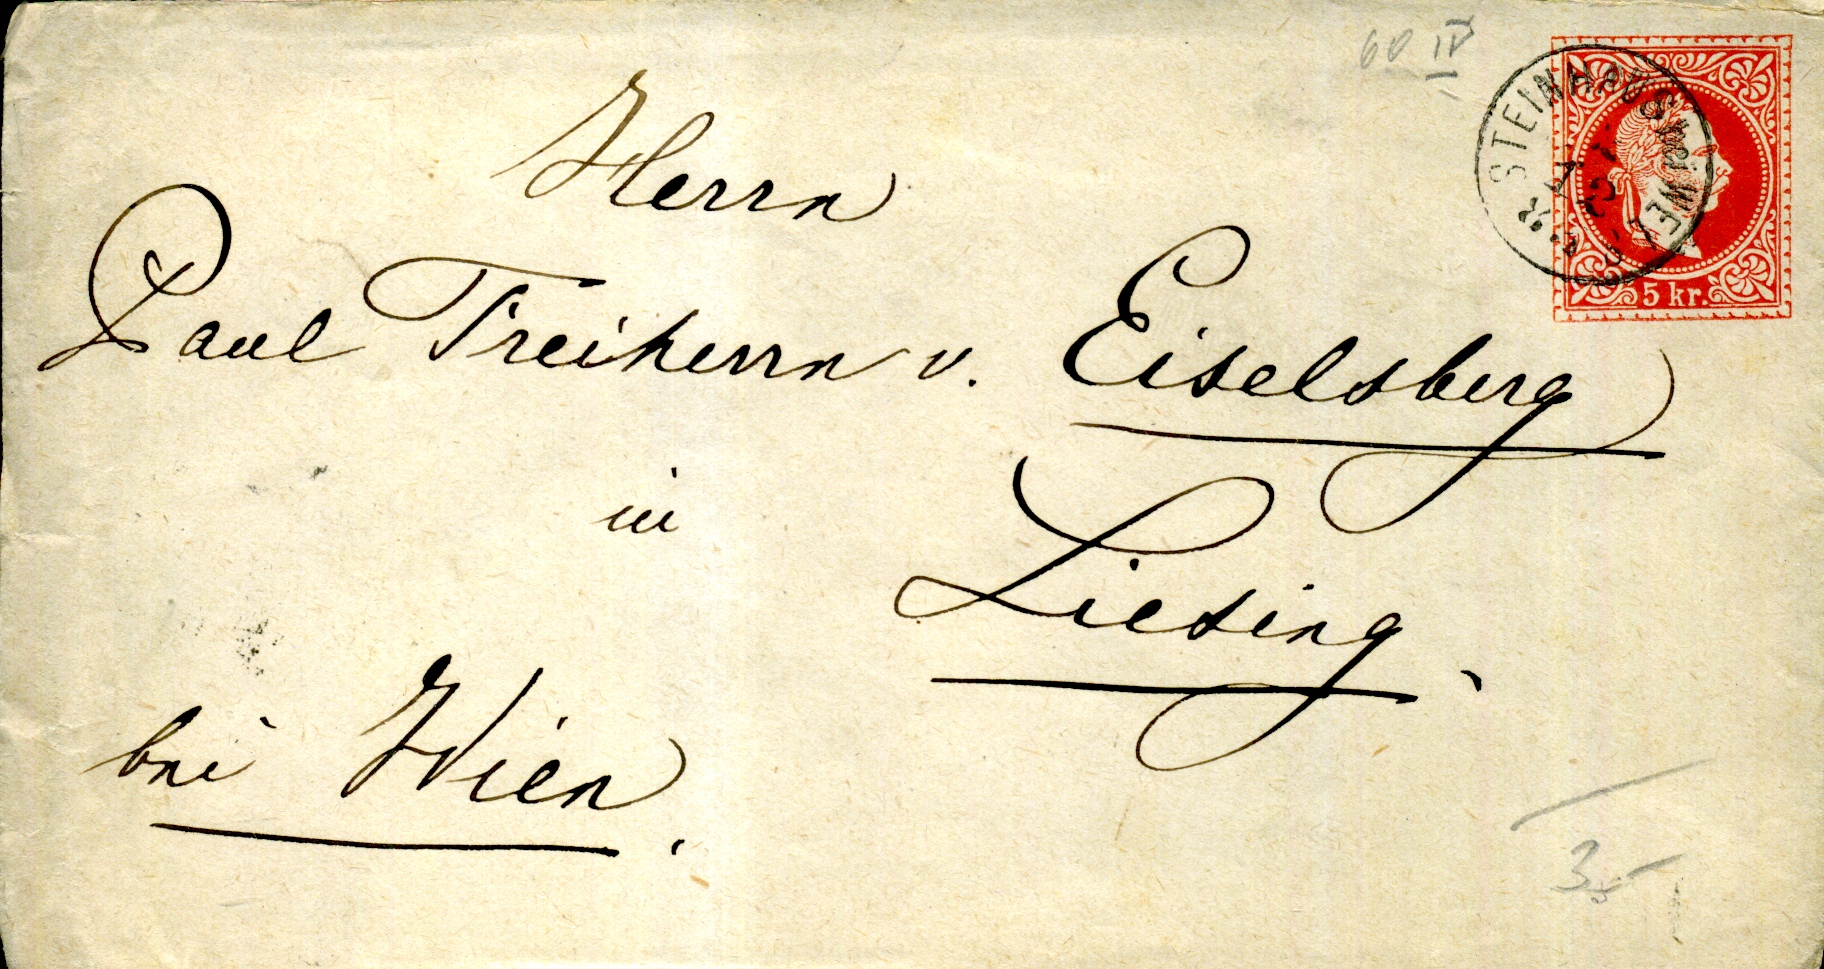 60 IV
STEINHAUS bei WELS
5 kr.
Herrn
Paul Freiherrn v. Eiselsberg
in
Liesing.
bei Wien.